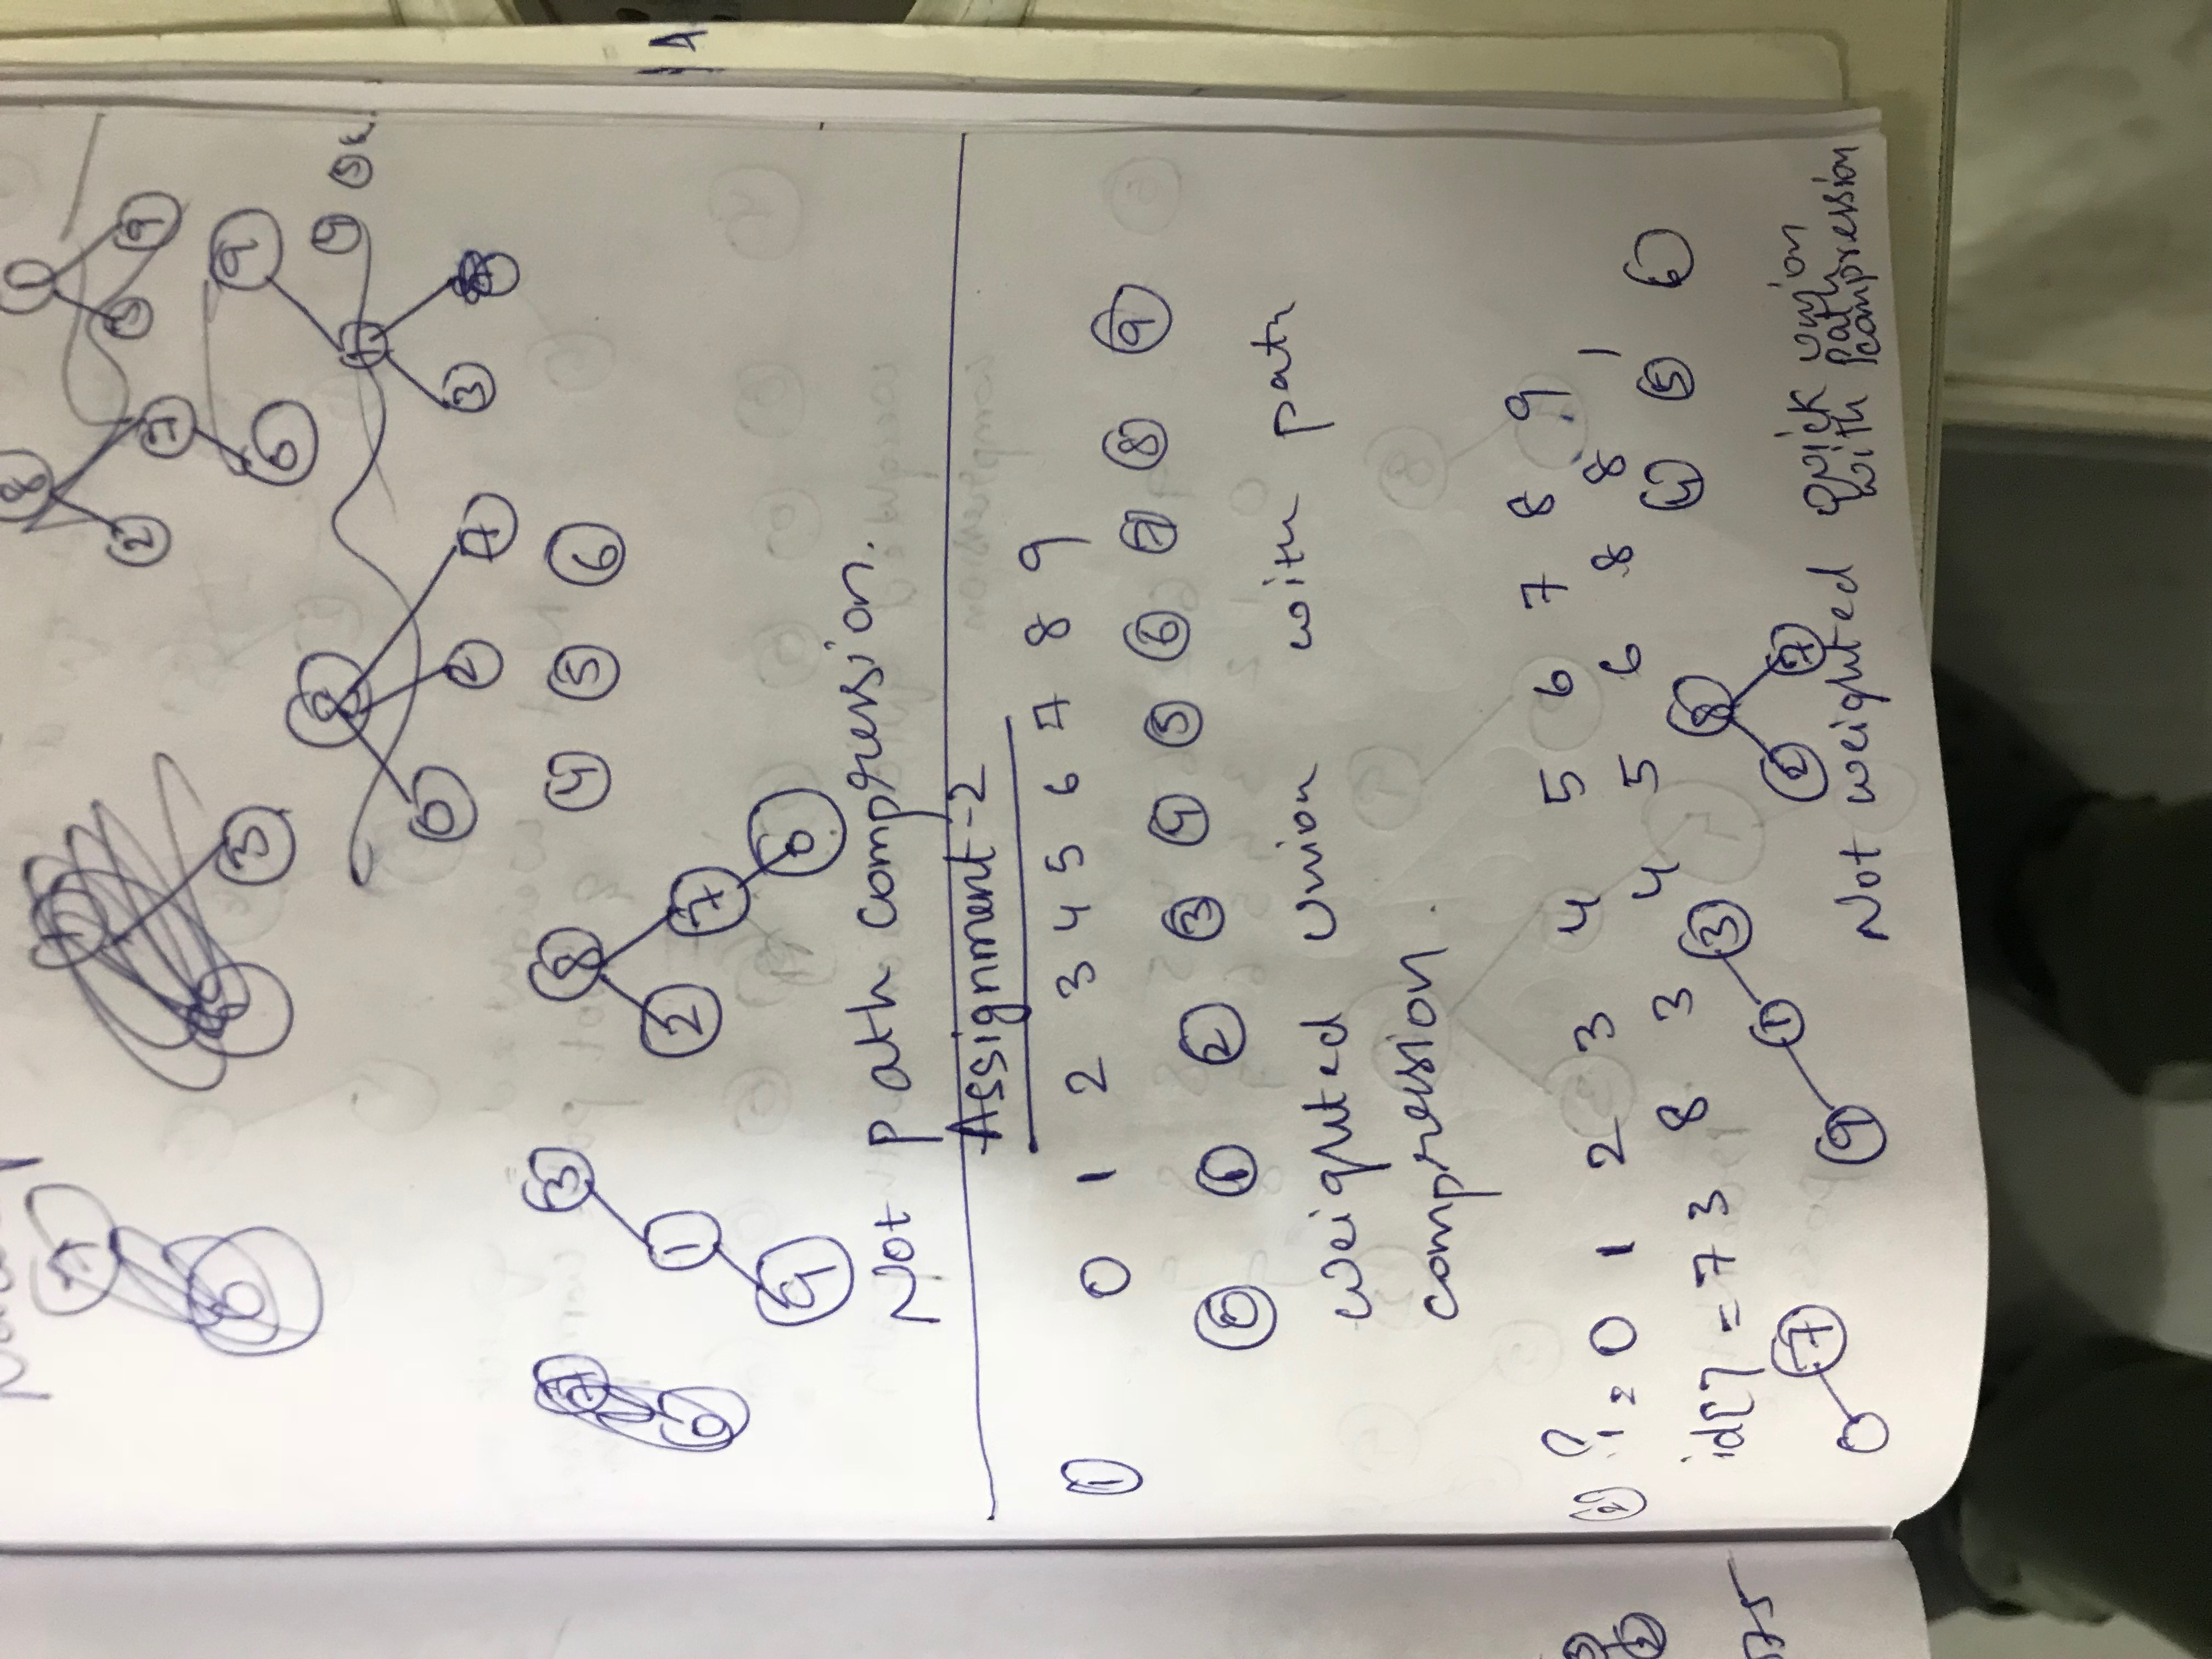 8
2
7
6
3
9
3
9
1
4
5
8
0
2
7
3
3
8
4 5 6
1
2
7
9
0
Not path compression.
Assignment-2
① 0 1 2 3 4 5 6 7 8 9
0 1 2 3 4 5 6 7 8 9
weighted union with path
compression.
② i = 0 1 2 3 4 5 6 7 8 9
id[] = 7 3 8 3 4 5 6 8 8 1
7
0
3
1
9
8
2 7
4 5 6
Not weighted quick union
with path
compression